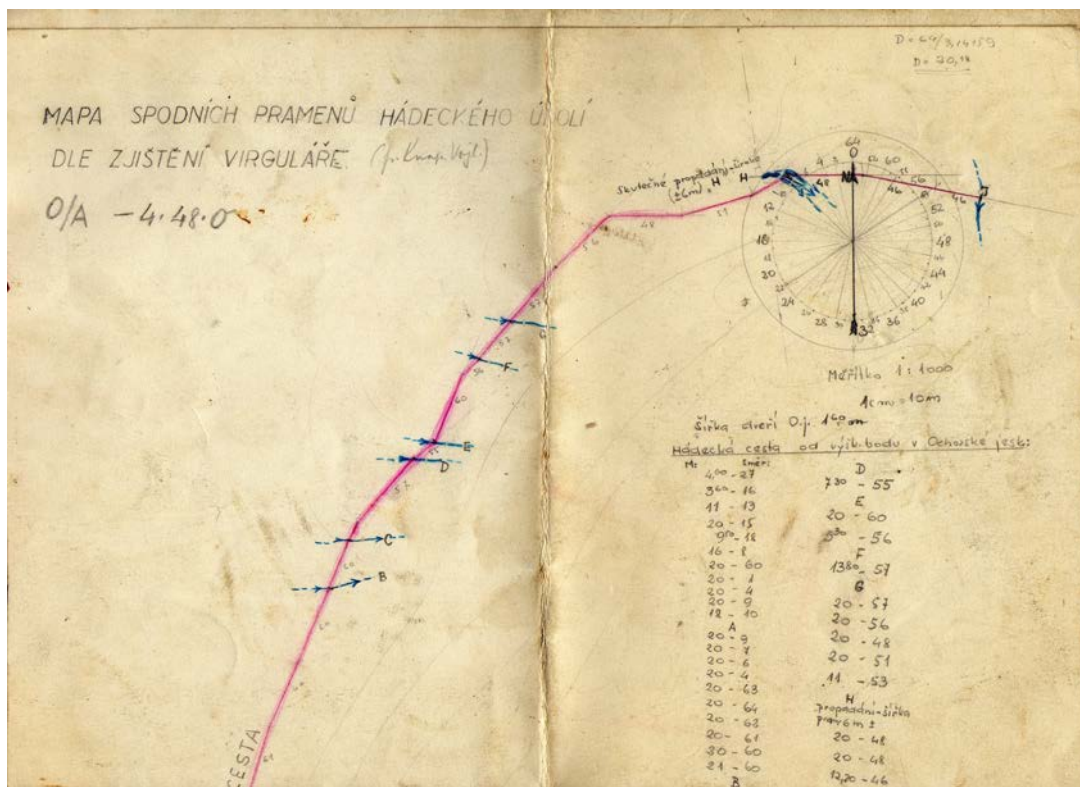 D = 64/3,14159
D = 20,
MAPA SPODNÍCH PRAMENŮ HÁDECKÉHO ÚDOLÍ
DLE ZJIŠTĚNÍ VIRGULÁŘE.
O/A - 4·48·0
Skutečné propadání-široko
(±6m)
H
H
J
G
F
E
D
C
B
CESTA
64
0
60
56
52
48
44
40
36
32
28
24
20
16
12
48
46
46
51
48
60
57
Měřítko 1:1000
1cm = 10m
Šířka dveří O.j. 160 cm
Hádecká cesta od vých. bodu v Ochozské jesk:
M: Směr:
4,00 - 27
3 60 - 16
11 - 13
20 - 15
9 50 - 18
16 - 8
20 - 60
20 - 1
20 - 4
20 - 9
12 - 10
A
20 - 9
20 - 7
20 - 6
20 - 4
20 - 63
20 - 64
20 - 62
20 - 61
30 - 60
21 - 60
B
D
7 30 - 55
E
20 - 60
9 30 - 56
F
13 80 - 57
G
20 - 57
20 - 56
20 - 48
20 - 51
11 - 53
H
propadání-šířka
6m ±
20 - 48
20 - 48
12,20 - 46